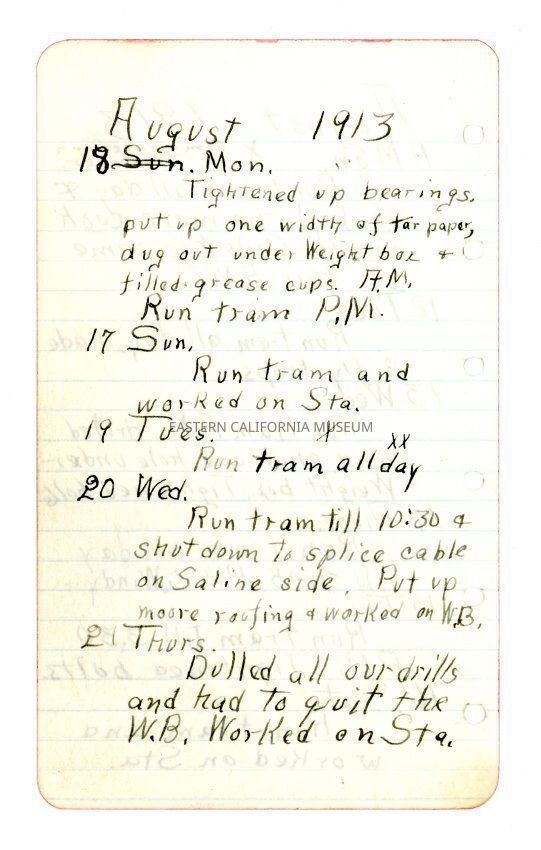 August 1913
18 Sun. Mon.
Tightened up bearings,
put up one width of tar paper,
dug out under Weight box &
filled grease cups. A.M.
Run tram P.M.
17 Sun.
Run tram and
worked on Sta.
19 Tues. X
EASTERN CALIFORNIA MUSEUM
XX
Run tram all day
20 Wed.
Run tram till 10:30 &
shut down to splice cable
on Saline side. Put up
moore roofing & worked on W.B.
2 Thurs.
Dulled all our drills
and had to quit the
W.B. Worked on Sta.